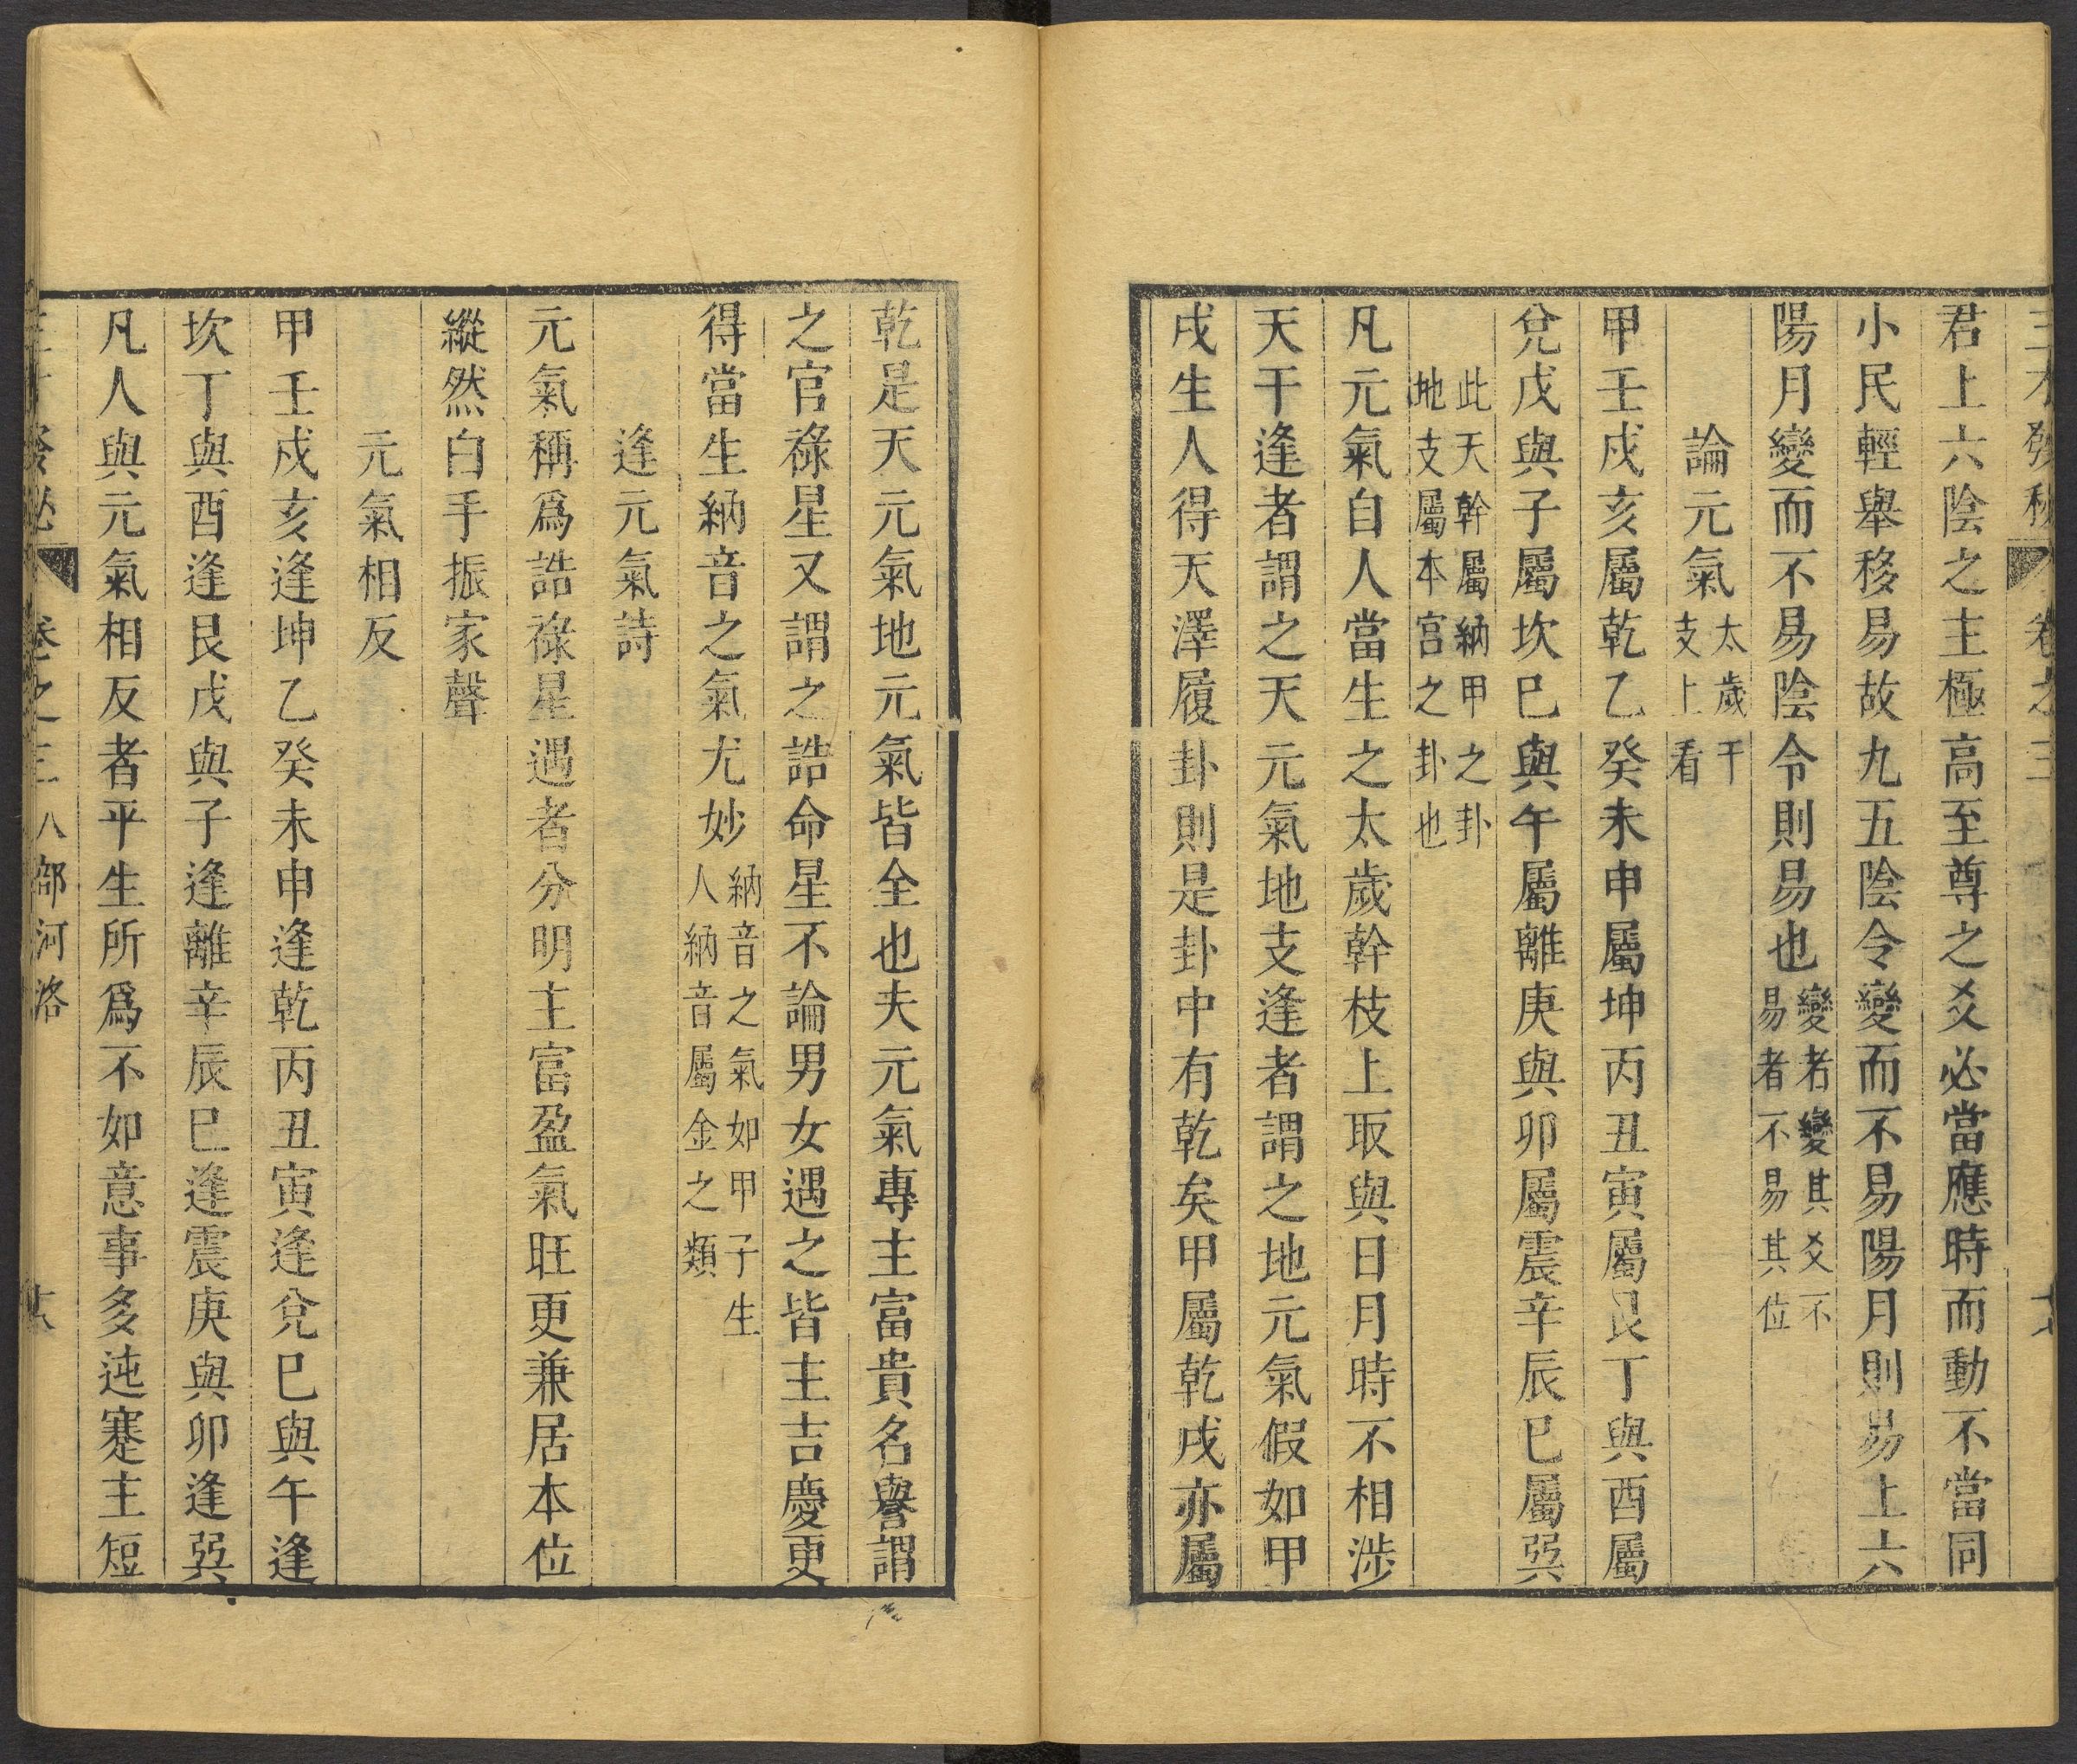 三才發秘 卷之三
君上六陰之主極高至尊之爻必當應時而動不當同
小民輕舉移易故九五陰令變而不易陽月則易上六
陽月變而不易陰令則易也變者變其爻不
易者不易其位
論元氣太歲干
支上看
甲壬戍亥屬乾乙癸未申屬坤丙丑寅屬艮丁與酉屬
兌戊與子屬坎巳與午屬離庚與卯屬震辛辰巳屬巽
此天幹屬納甲之卦
地支屬本宮之卦也
凡元氣自人當生之太歲幹枝上取與日月時不相涉
天干逢者謂之天元氣地支逢者謂之地元氣假如甲
戌生人得天澤履卦則是卦中有乾矣甲屬乾戌亦屬
乾是天元氣地元氣皆全也夫元氣專主富貴名譽謂
之官祿星又謂之誥命星不論男女遇之皆主吉慶更
得當生納音之氣尤妙納音之氣如甲子生
人納音屬金之類
逢元氣詩
元氣稱爲誥祿星遇者分明主富盈氣旺更兼居本位
縱然白手振家聲
元氣相反
甲壬戍亥逢坤乙癸未申逢乾丙丑寅逢兌巳與午逢
坎丁與酉逢艮戊與子逢離辛辰巳逢震庚與卯逢巽
凡人與元氣相反者平生所爲不如意事多迍蹇主短
發秘 卷之三八部河洛 十六